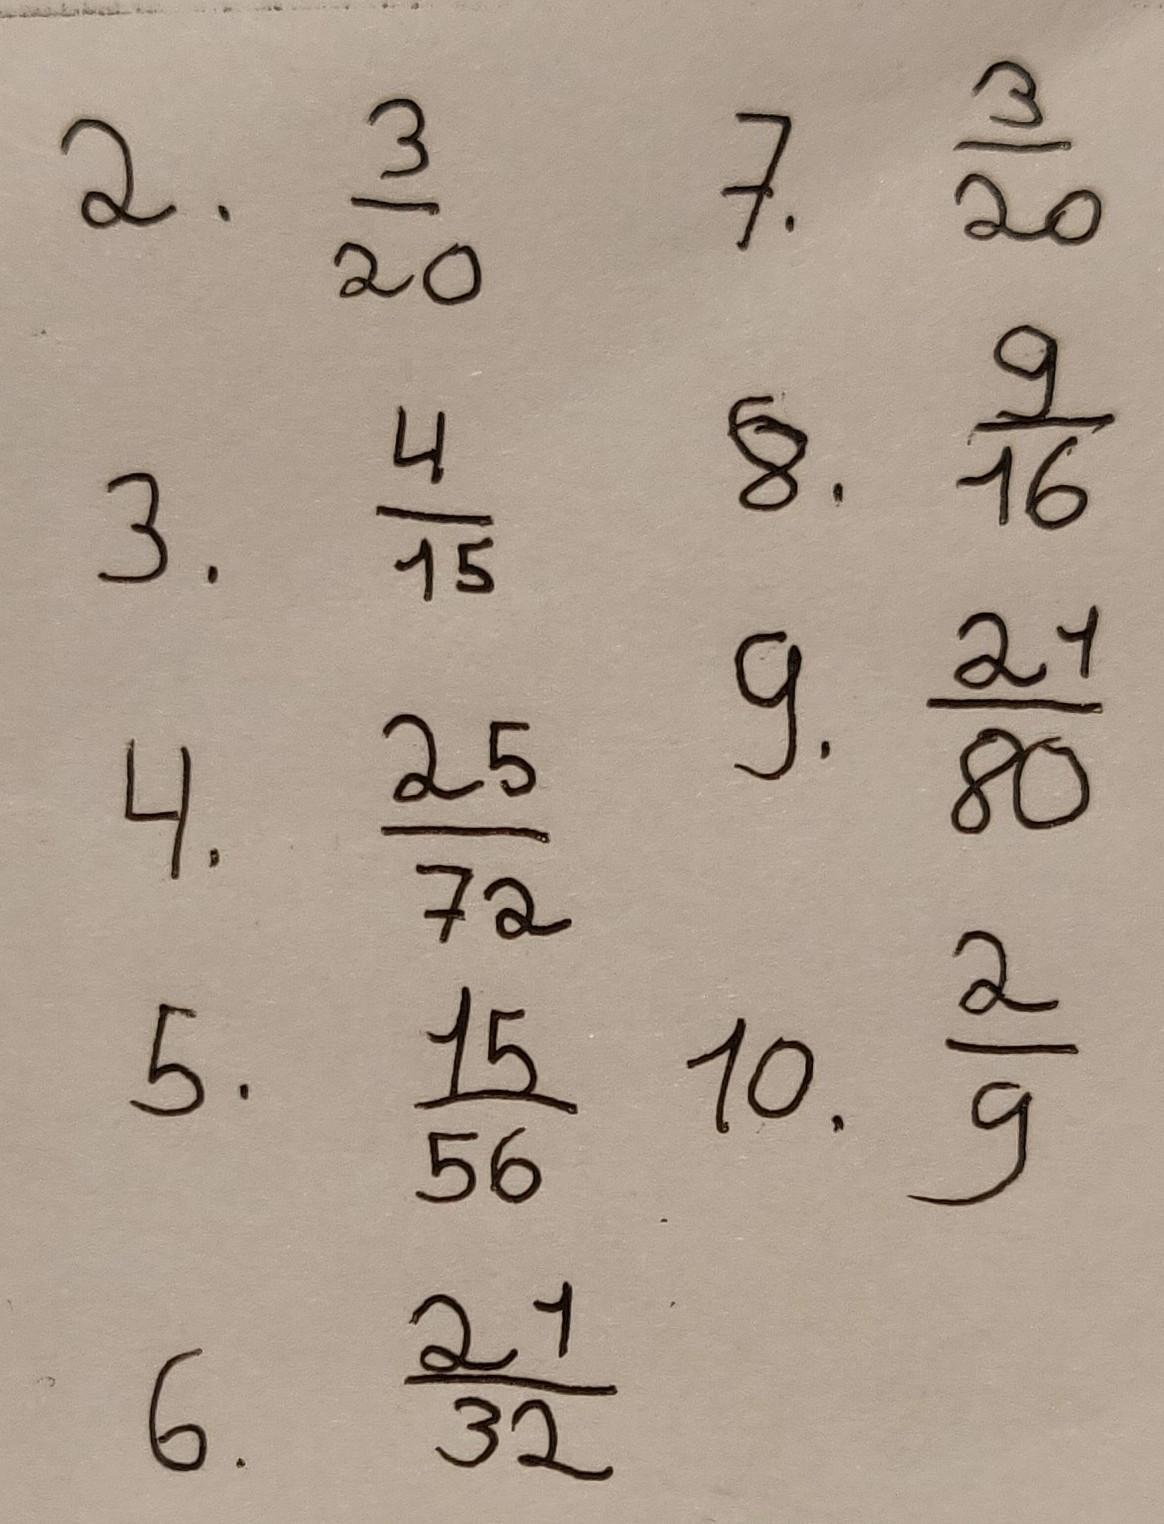 2. 3/20
3. 4/15
4. 25/72
5. 15/56
6. 21/32
7. 3/20
8. 9/16
9. 21/80
10. 2/9